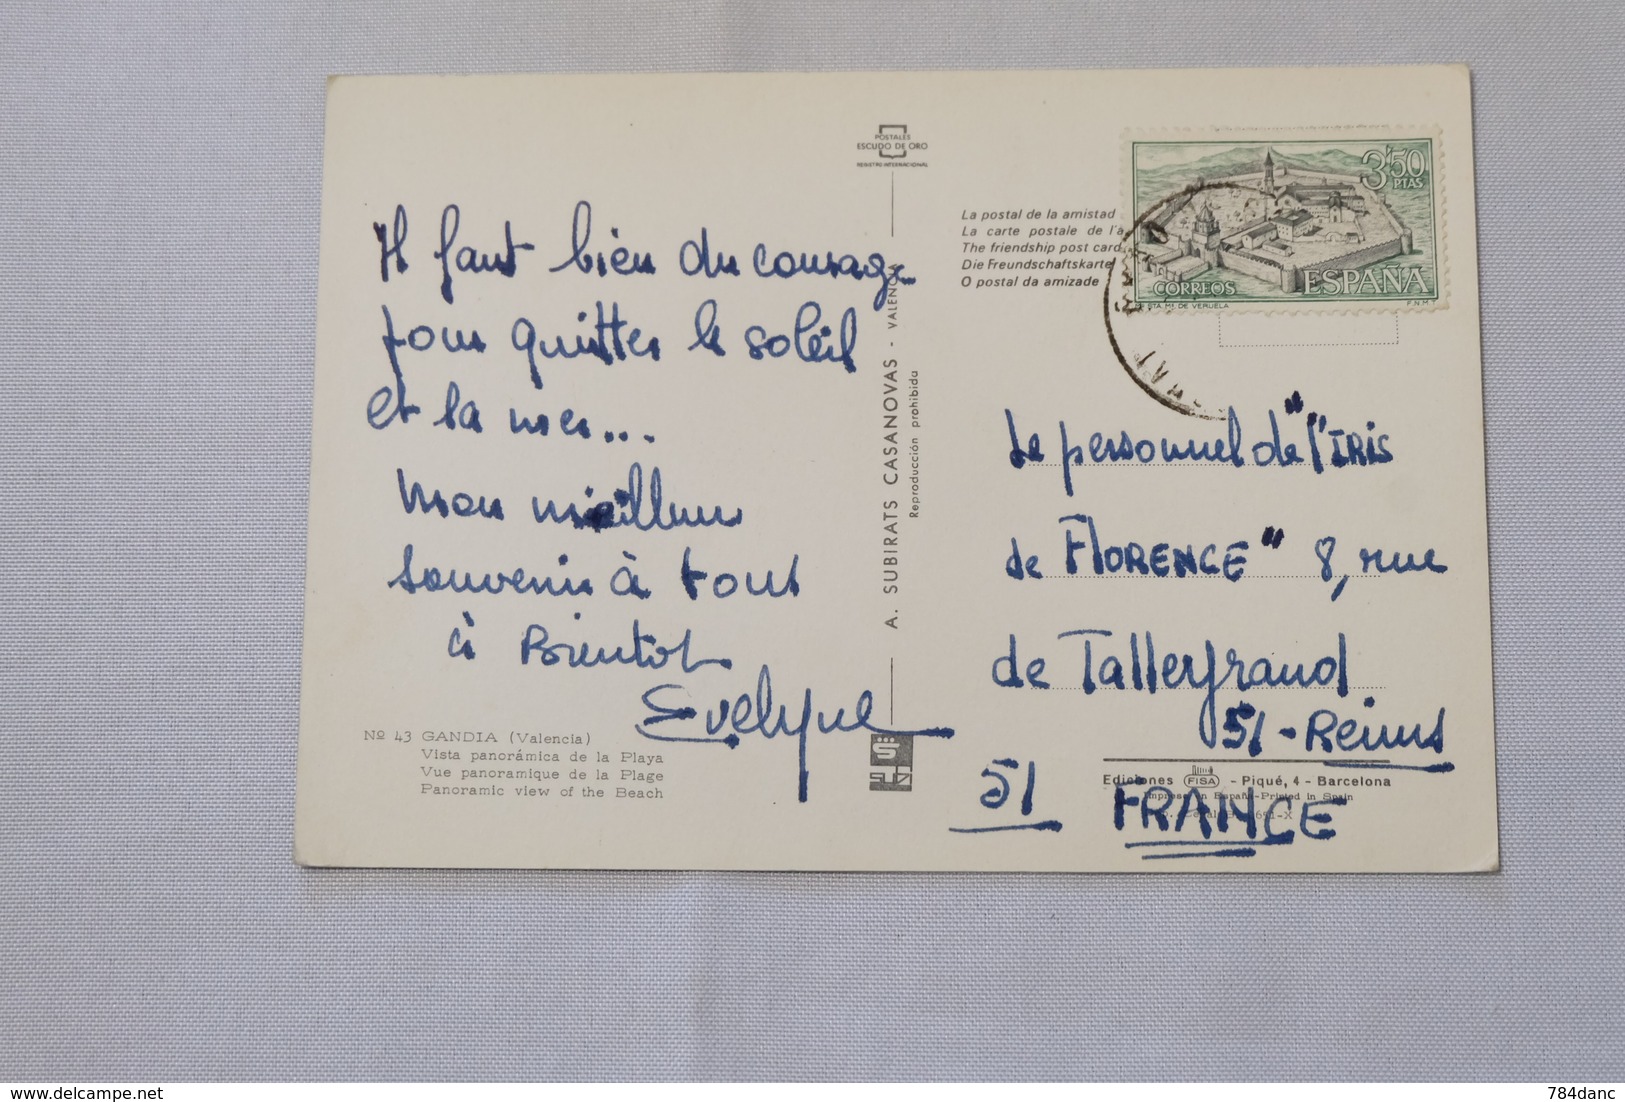 Il faut bien du courage
pour quitter le soleil
et la mer...
Mon meilleur
souvenir à tous
à Bientot
Evelyne
Nº 43 GANDIA (Valencia)
Vista panorámica de la Playa
Vue panoramique de la Plage
Panoramic view of the Beach
POSTALES
ESCUDO DE ORO
REGISTRO INTERNACIONAL
A. SUBIRATS CASANOVAS - VALENCIA
Reproducción prohibida
SUBI
La postal de la amistad
La carte postale de l'a
The friendship post card
Die Freundschaftskarte
O postal da amizade
3'50
PTAS
CORREOS ESPAÑA
STA. Mª. DE VERUELA F.N.M.T.
Le personnel de "l'IRIS
de FlORENCE" 8, rue
de Tallerfraud
51-Reims
51 FRANCE
Ediciones FISA - Piqué, 4 - Barcelona
Impreso en España-Printed in Spain
784danc